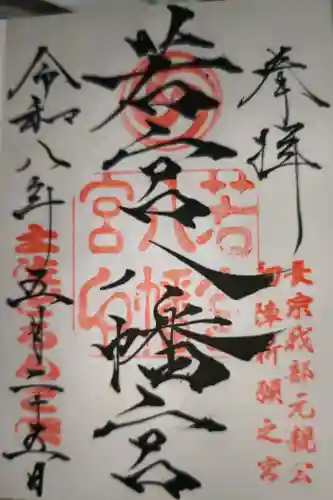 奉拝
長宗我部元親公
初陣祈願之宮
若宮八幡宮
令和八年五月二十五日